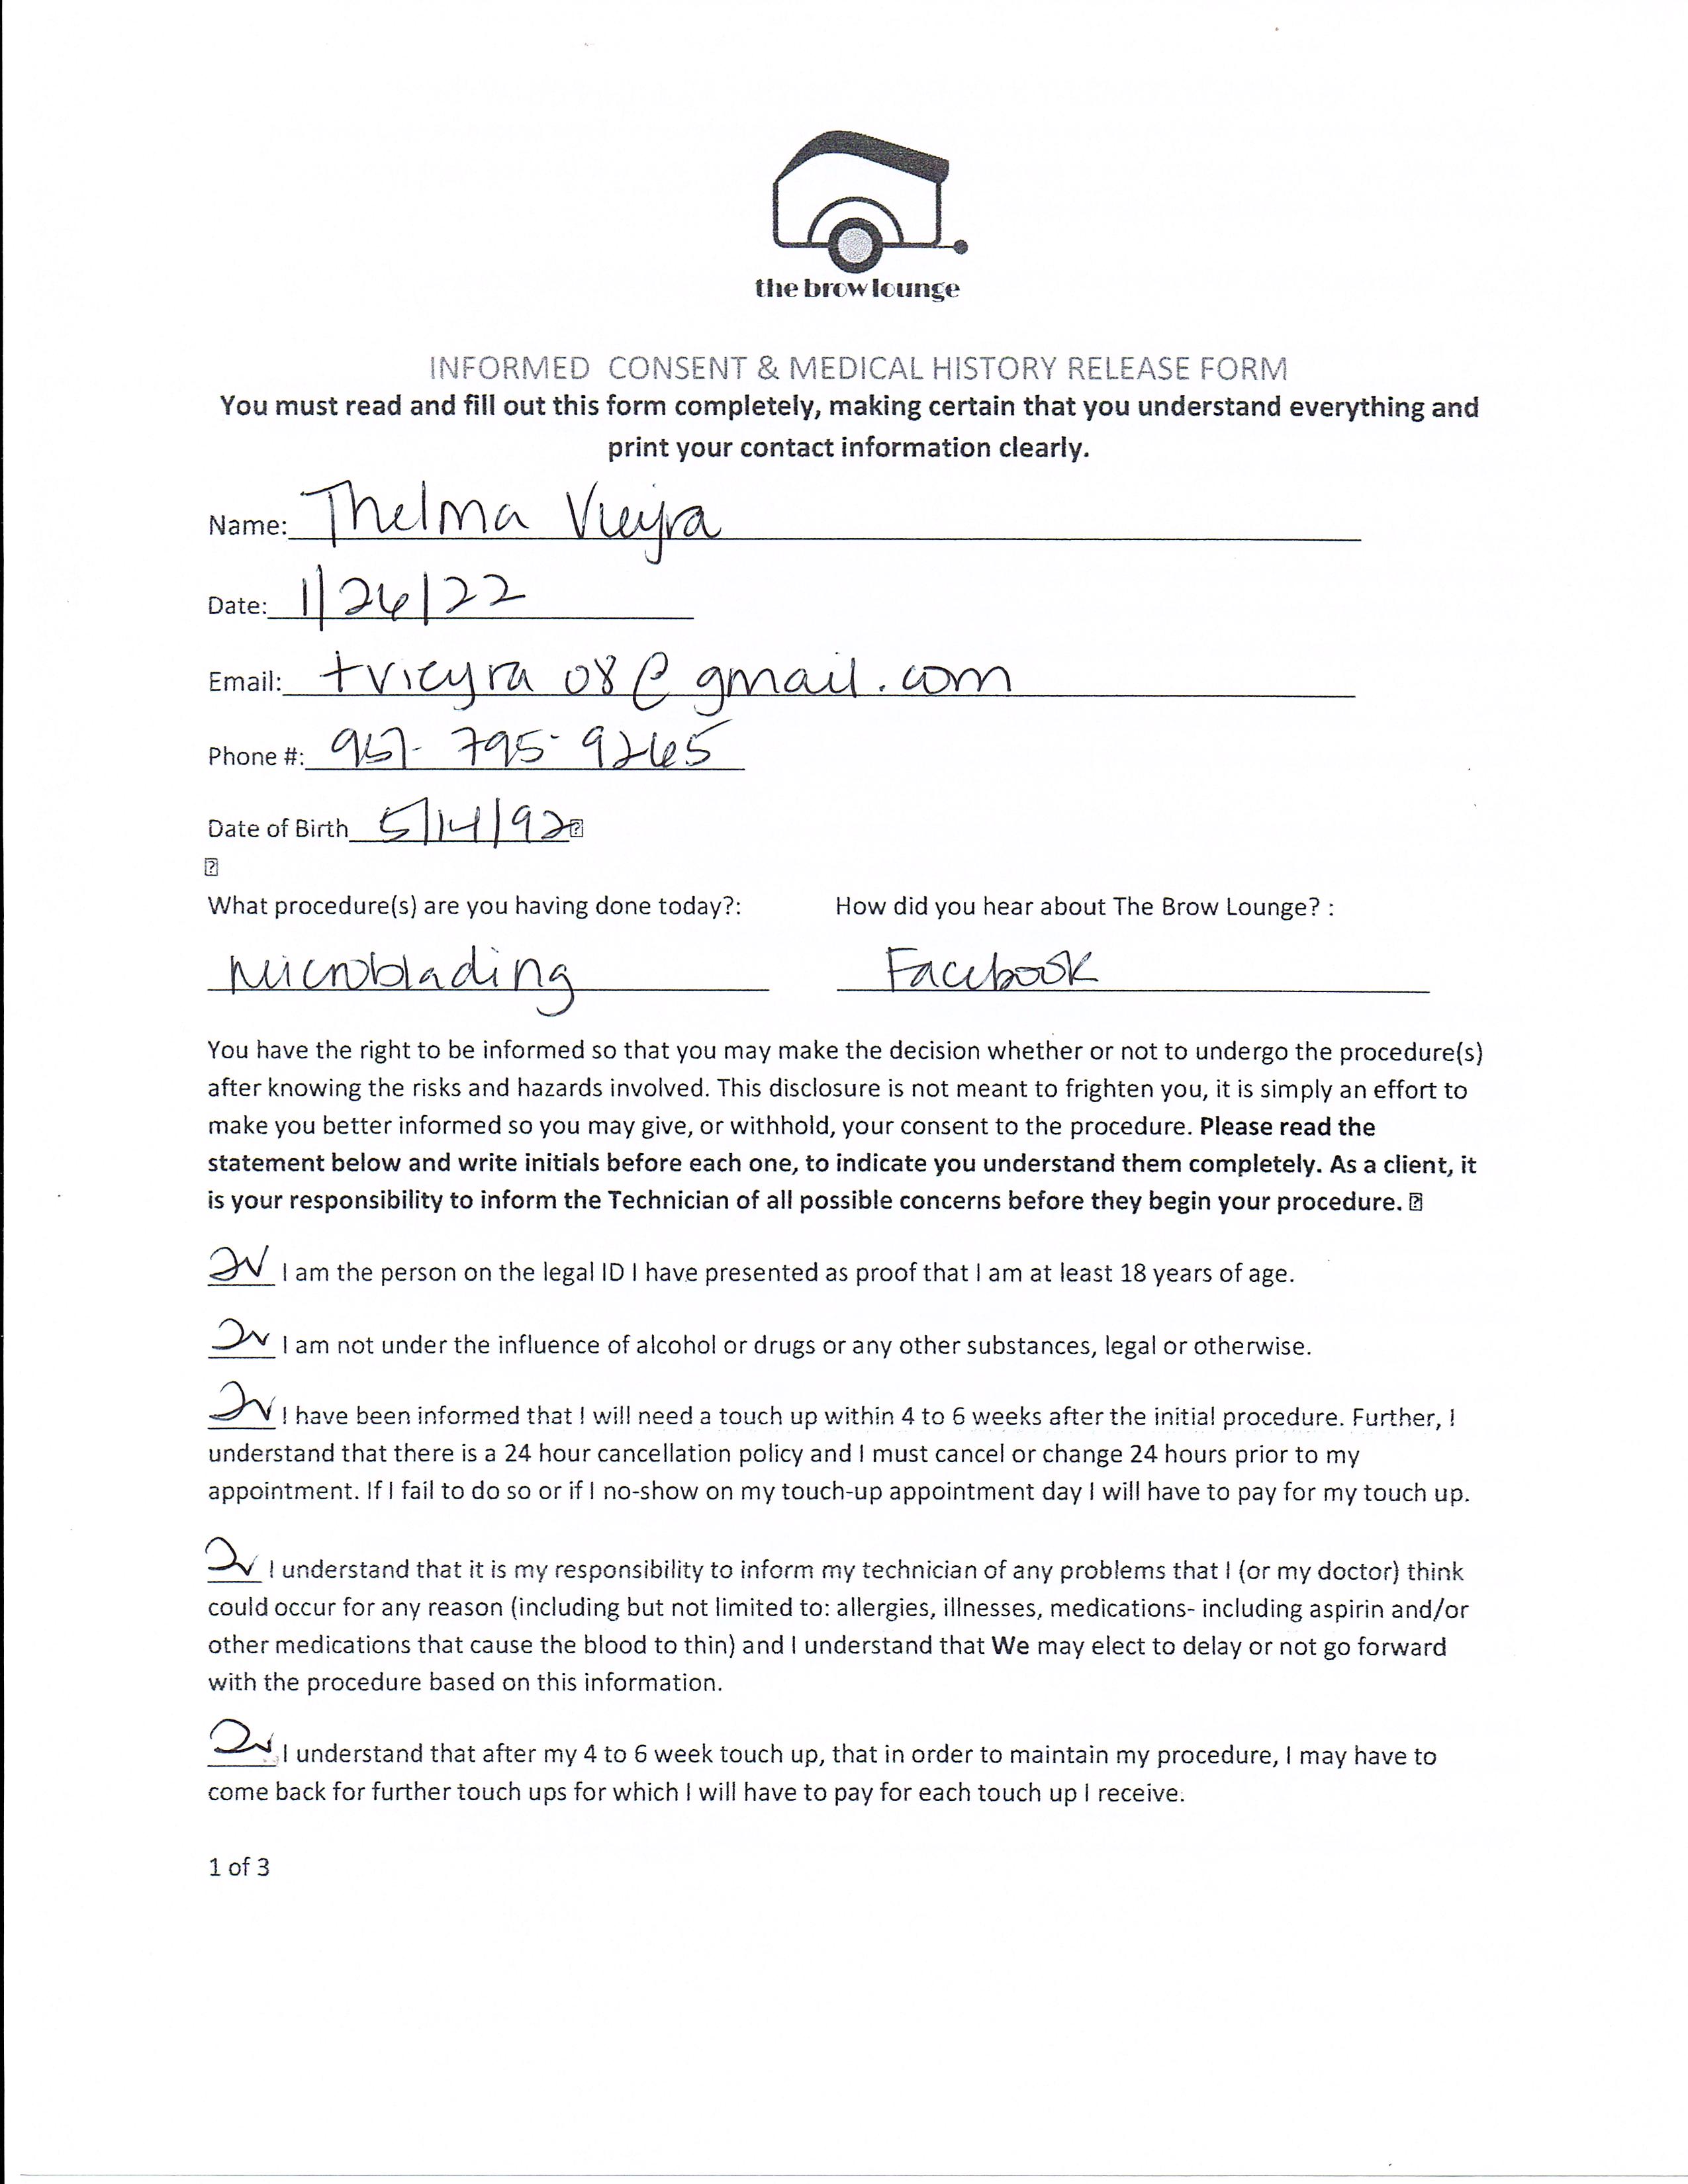 the brow lounge
INFORMED CONSENT & MEDICAL HISTORY RELEASE FORM
You must read and fill out this form completely, making certain that you understand everything and
print your contact information clearly.
Name: Thelma Vieyra
Date: 1/26/22
Email: tvieyra08@gmail.com
Phone #: 951-795-9265
Date of Birth 5/14/92
What procedure(s) are you having done today?: How did you hear about The Brow Lounge? :
Microblading Facebook
You have the right to be informed so that you may make the decision whether or not to undergo the procedure(s)
after knowing the risks and hazards involved. This disclosure is not meant to frighten you, it is simply an effort to
make you better informed so you may give, or withhold, your consent to the procedure. Please read the
statement below and write initials before each one, to indicate you understand them completely. As a client, it
is your responsibility to inform the Technician of all possible concerns before they begin your procedure.
I am the person on the legal ID I have presented as proof that I am at least 18 years of age.
I am not under the influence of alcohol or drugs or any other substances, legal or otherwise.
I have been informed that I will need a touch up within 4 to 6 weeks after the initial procedure. Further, I
understand that there is a 24 hour cancellation policy and I must cancel or change 24 hours prior to my
appointment. If I fail to do so or if I no-show on my touch-up appointment day I will have to pay for my touch up.
I understand that it is my responsibility to inform my technician of any problems that I (or my doctor) think
could occur for any reason (including but not limited to: allergies, illnesses, medications- including aspirin and/or
other medications that cause the blood to thin) and I understand that We may elect to delay or not go forward
with the procedure based on this information.
I understand that after my 4 to 6 week touch up, that in order to maintain my procedure, I may have to
come back for further touch ups for which I will have to pay for each touch up I receive.
1 of 3